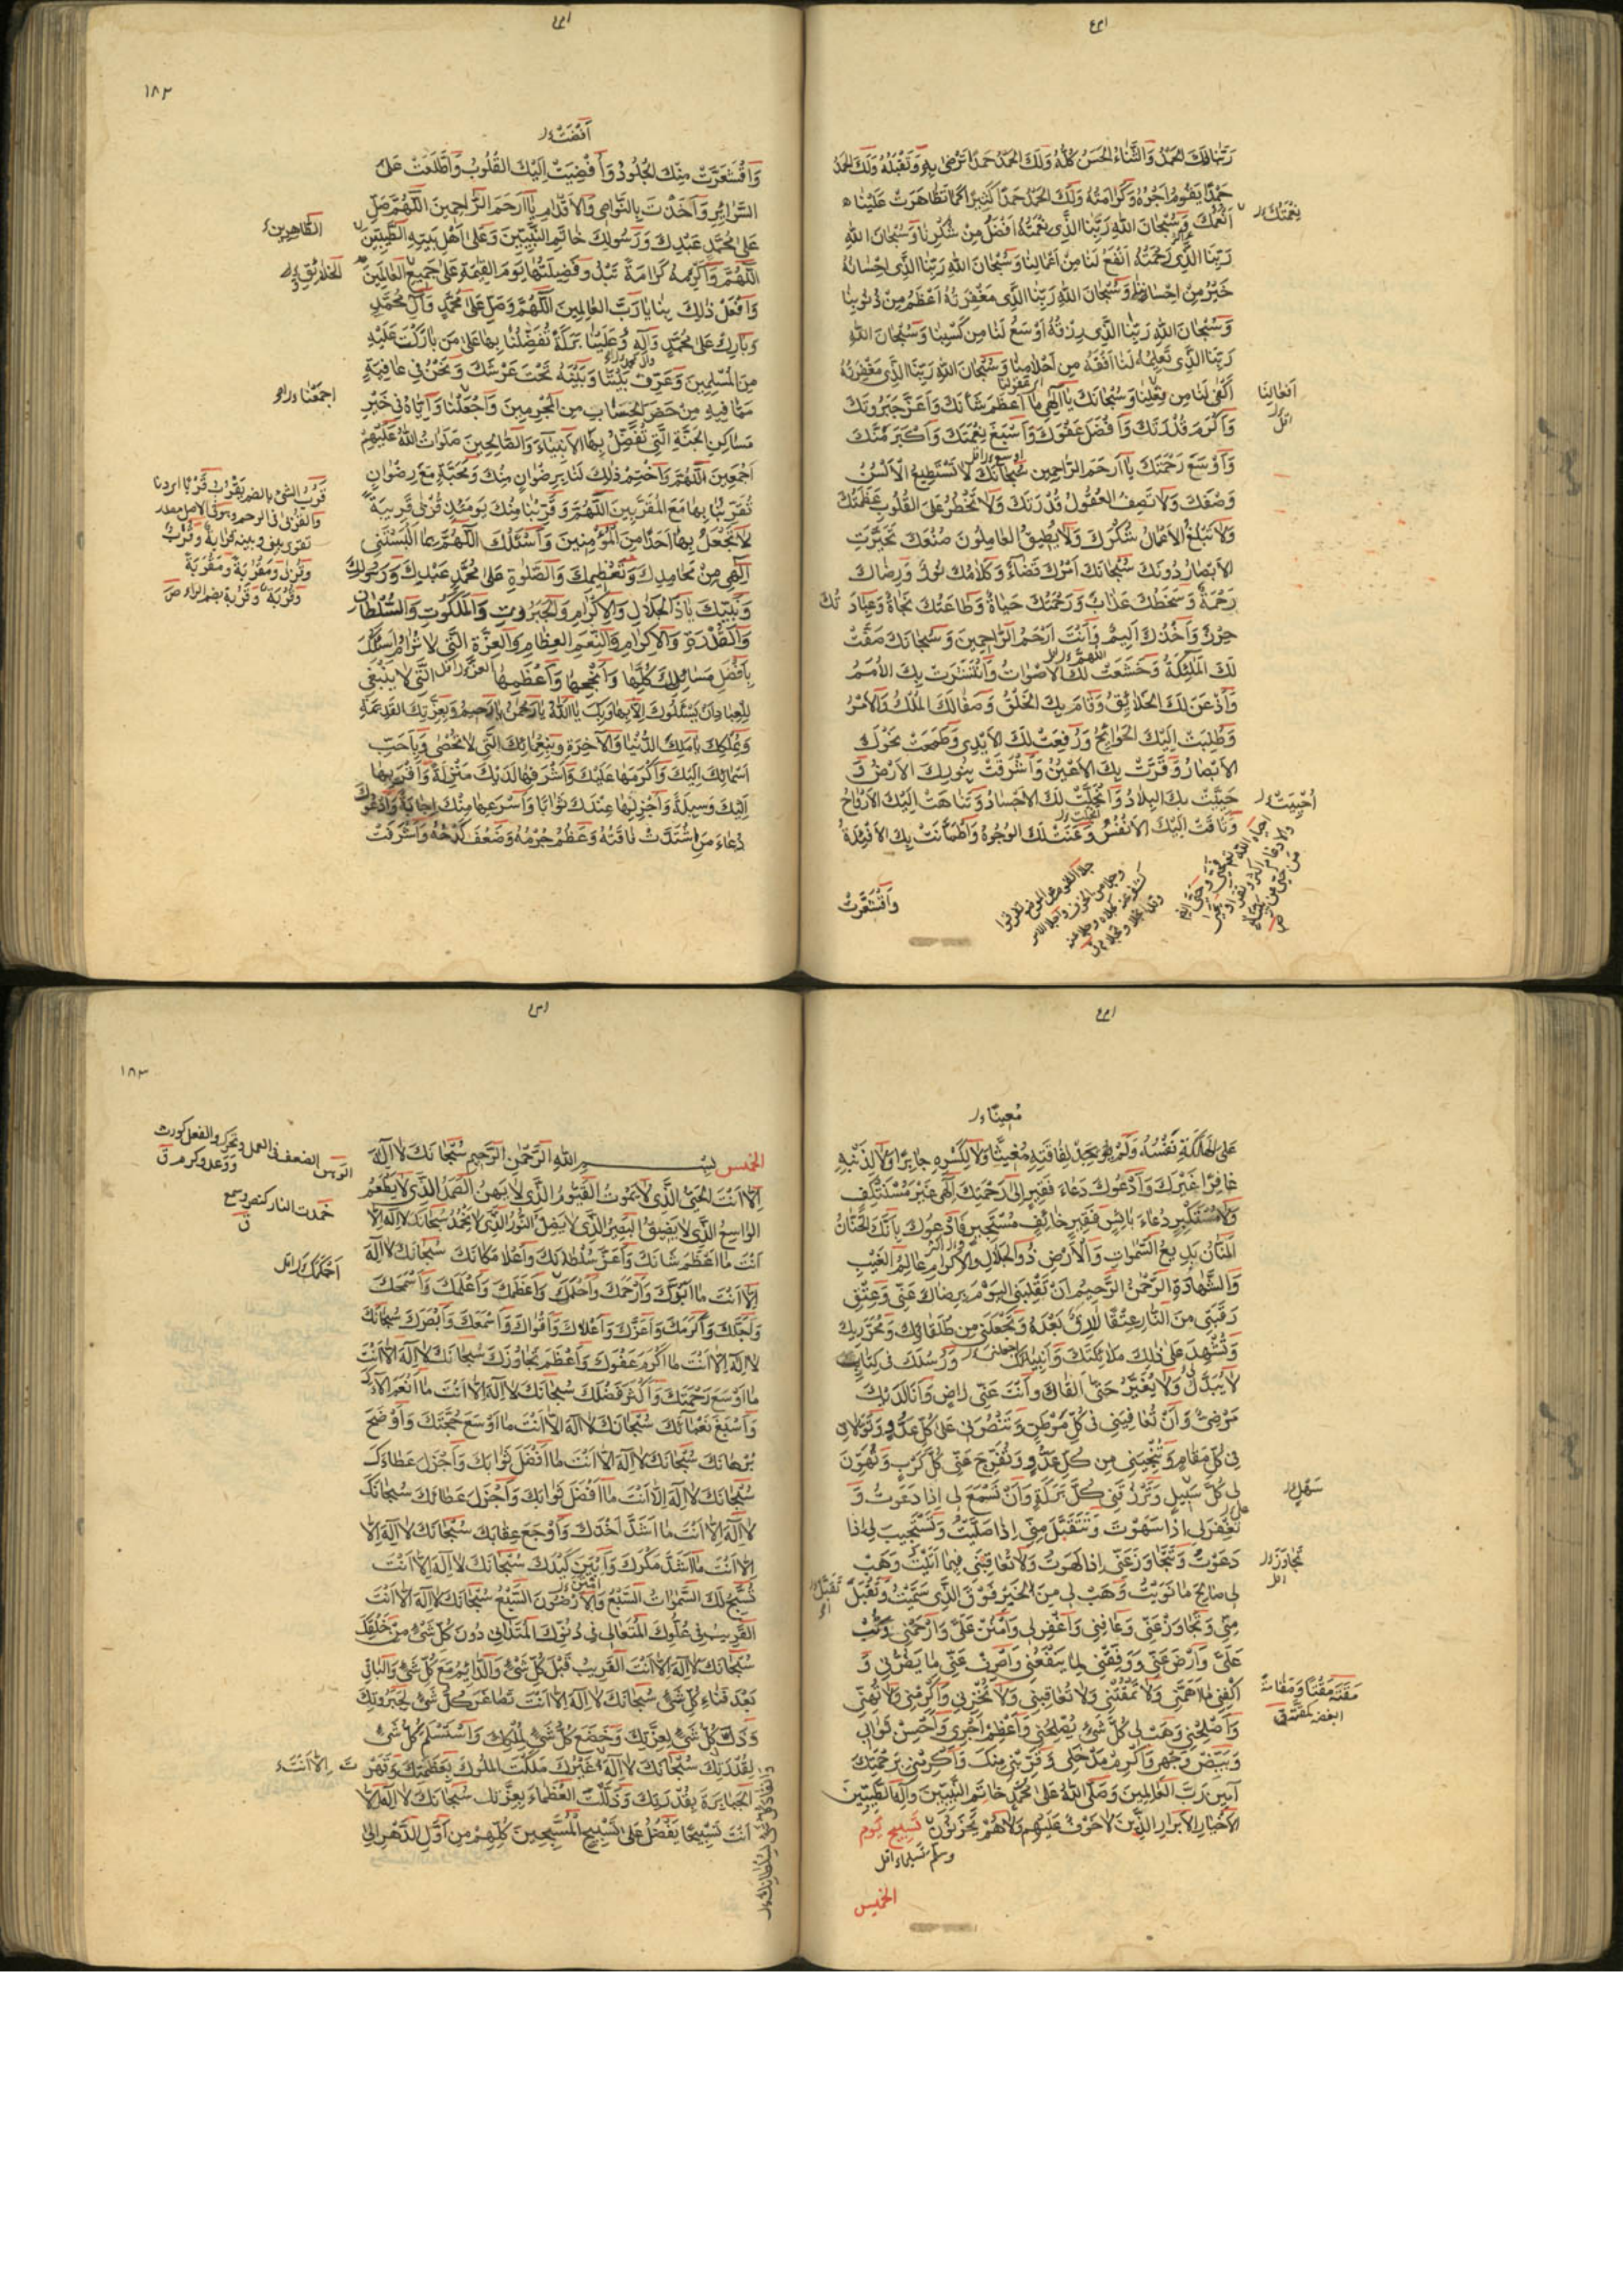 رَبَّنَا لَكَ الحَمْدُ وَالثَّنَاءُ الحَسَنُ كُلُّهُ وَلَكَ الحَمْدُ حَمْدًا تَرْضٰى بِهِ وَتَقْبَلُهُ وَلَكَ الحَمْدُ
حَمْدًا يَقُومُ اَجْرُهُ وَكَرَامَتُهُ وَلَكَ الحَمْدُ حَمْدًا كَثِيرًا كَمَا تَظَاهَرَتْ عَلَيْنَا
نِعْمَتُكَ
اَنْعُمُكَ وَسُبْحَانَ اللهِ رَبِّنَا الَّذِي نِعْمَتُهُ اَفْضَلُ مِنْ شُكْرِنَا وَسُبْحَانَ اللهِ
رَبِّنَا الَّذِي رَحْمَتُهُ اَنْفَعُ لَنَا مِنْ اَعْمَالِنَا وَسُبْحَانَ اللهِ رَبِّنَا الَّذِي اِحْسَانُهُ
خَيْرٌ مِنْ اِحْسَانِنَا وَسُبْحَانَ اللهِ رَبِّنَا الَّذِي مَغْفِرَتُهُ اَعْظَمُ مِنْ ذُنُوبِنَا
وَسُبْحَانَ اللهِ رَبِّنَا الَّذِي رِزْقُهُ اَوْسَعُ لَنَا مِنْ كَسْبِنَا وَسُبْحَانَ اللهِ
رَبِّنَا الَّذِي تَعْلِيمُهُ لَنَا اَفْقَهُ مِن اَحْلَامِنَا وَسُبْحَانَ اللهِ رَبِّنَا الَّذِي مَغْفِرَتُهُ
اَفْعَالِنَا
اَكْفٰى لَنَا مِن فِعْلِنَا وَسُبْحَانَكَ يَا اِلٰهِي مَا اَعْظَمَ شَأْنَكَ وَاَعَزَّ جَبَرُوتَكَ
وَاَكْرَمَ قُدْرَتَكَ وَاَفْضَلَ عَفْوَكَ وَاَسْبَغَ نِعْمَتَكَ وَاَكْبَرَ مَنَّكَ
وَاَوْسَعَ رَحْمَتَكَ يَا اَرْحَمَ الرَّاحِمِينَ سُبْحَانَكَ لَا تَسْتَطِيعُ الْاَلْسُنُ
وَصْفَكَ وَلَا تَصِفُ العُقُولُ قُدْرَتَكَ وَلَا تَخْطُرُ عَلَى القُلُوبِ عَظَمَتُكَ
وَلَا تَبْلُغُ الْاَعْمَالُ شُكْرَكَ وَلَا يُطِيقُ العَامِلُونَ صُنْعَكَ تَحَيَّرَتِ
الْاَبْصَارُ دُونَكَ سُبْحَانَكَ اَمْرُكَ قَضَاءٌ وَكَلَامُكَ نُورٌ وَرِضَاكَ
رَحْمَةٌ وَسَخَطُكَ عَذَابٌ وَرَحْمَتُكَ حَيَاةٌ وَطَاعَتُكَ نَجَاةٌ وَعِبَادَتُكَ
حِرْزٌ وَاَخْذُكَ اَلِيمٌ وَاَنْتَ اَرْحَمُ الرَّاحِمِينَ وَسُبْحَانَكَ صَفَّتْ
لَكَ المَلٰئِكَةُ وَخَشَعَتْ لَكَ الْاَصْوَاتُ وَانْتَشَرَتْ بِكَ الْاُمَمُ
وَاَذْعَنَ لَكَ الخَلَائِقُ وَقَامَ بِكَ الخَلْقُ وَصَفَا لَكَ المُلْكُ وَالْاَمْرُ
وَطُلِبَتْ اِلَيْكَ الحَوَائِجُ وَرُفِعَتْ لَكَ الْاَيْدِي وَطَمَحَتْ نَحْوَكَ
الْاَبْصَارُ وَقَرَّتْ بِكَ الْاَعْيُنُ وَاَشْرَقَتْ بِنُورِكَ الْاَرْضُ وَ
حَيِيَتْ بِكَ البِلَادُ وَانْجَلَتْ لَكَ الْاَجْسَادُ وَتَنَاهَتْ اِلَيْكَ الْاَرْوَاحُ
وَتَاقَتْ اِلَيْكَ الْاَنْفُسُ وَعَنَتْ لَكَ الوُجُوهُ وَاطْمَأَنَّتْ بِكَ الْاَفْئِدَةُ
وَاقْشَعَرَّتْ
١٨٢
اَفْضَتْ
وَاقْشَعَرَّتْ مِنْكَ الجُلُودُ وَاَفْضِيَتْ اِلَيْكَ القُلُوبُ وَاطَّلَعَتْ عَلَى
السَّرَائِرِ وَاَخَذْتَ بِالنَّوَاصِي وَالْاَقْدَامِ يَا اَرْحَمَ الرَّاحِمِينَ اَللّٰهُمَّ صَلِّ
عَلٰى مُحَمَّدٍ عَبْدِكَ وَرَسُولِكَ خَاتَمِ النَّبِيِّينَ وَعَلٰى اَهْلِ بَيْتِهِ الطَّيِّبِينَ
الطَّاهِرِينَ
اَللّٰهُمَّ وَاَكْرِمْهُ كَرَامَةً تَبْدُو فَضِيلَتُهَا يَوْمَ القِيٰمَةِ عَلٰى جَمِيعِ العَالَمِينَ
الخلائق
وَافْعَلْ ذٰلِكَ بِنَا يَا رَبَّ العَالَمِينَ اَللّٰهُمَّ وَصَلِّ عَلٰى مُحَمَّدٍ وَآلِ مُحَمَّدٍ
وَبَارِكْ عَلٰى مُحَمَّدٍ وَآلِهِ وَعَلَيْنَا بَرَكَةً تُفَضِّلُنَا بِهَا عَلٰى مَن بَارَكْتَ عَلَيْهِ
مِنَ المُسْلِمِينَ وَعَرِّفْ بَيْنَنَا وَبَيْنَهُ تَحْتَ عَرْشِكَ وَنَحْنُ فِي عَافِيَةٍ
مِمَّا فِيهِ مِنْ حَضَرَ الحِسَابَ مِن المُجْرِمِينَ وَاجْعَلْنَا وَاِيَّاهُ فِي خَيْرِ
مَسَاكِنِ الجَنَّةِ الَّتِي تُفَضِّلُ بِهَا الْاَنْبِيَاءَ وَالصَّالِحِينَ صَلَوَاتُ اللهِ عَلَيْهِمْ
اَجْمَعِينَ اَللّٰهُمَّ وَاخْتِمْ ذٰلِكَ لَنَا بِرِضْوَانٍ مِنْكَ وَمَحَبَّةٍ مَعَ رِضْوَانٍ
تُقَرِّبُنَا بِهَا مَعَ المُقَرَّبِينَ اَللّٰهُمَّ وَقَرِّبْنَا مِنْكَ يَوْمَئِذٍ قُرْبٰى قَرِيبَةً
لَا تَجْعَلُ بِهَا اَحَدًا مِنَ المُؤْمِنِينَ وَاَسْئَلُكَ اَللّٰهُمَّ بِمَا اَلْبَسْتَنِي
اِلٰهِي مِنْ مَحَامِدِكَ وَتَعْظِيمِكَ وَالصَّلٰوةِ عَلٰى مُحَمَّدٍ عَبْدِكَ وَرَسُولِكَ
وَنَبِيِّكَ يَا ذَا الجَلَالِ وَالْاِكْرَامِ وَالجَبَرُوتِ وَالمَلَكُوتِ وَالسُّلْطَانِ
وَالقُدْرَةِ وَالْاِكْرَامِ وَالنِّعَمِ العِظَامِ وَالعِزَّةِ الَّتِي لَا تُرَامُ اَسْئَلُكَ
بِاَفْضَلِ مَسَائِلِكَ كُلِّهَا وَاَنْجَحِهَا وَاَعْظَمِهَا الَّتِي لَا يَنْبَغِي
لِلْعِبَادِ اَنْ يَسْئَلُوكَ اِلَّا بِهَا وَبِكَ يَا اَللهُ يَا رَحْمٰنُ يَا رَحِيمُ وَبِعِزَّتِكَ القَدِيمَةِ
وَبِمُلْكِكَ يَا مَلِكَ الدُّنْيَا وَالْآخِرَةِ وَبِنَعْمَائِكَ الَّتِي لَا تُحْصٰى وَبِاَحَبِّ
اَسْمَائِكَ اِلَيْكَ وَاَكْرَمِهَا عَلَيْكَ وَاَشْرَفِهَا لَدَيْكَ مَنْزِلَةً وَاَقْرَبِهَا
اِلَيْكَ وَسِيلَةً وَاَجْزَلِهَا عِنْدَكَ ثَوَابًا وَاَسْرَعِهَا مِنْكَ اِجَابَةً وَاَدْعُوكَ
دُعَاءَ مَنِ اشْتَدَّتْ فَاقَتُهُ وَعَظُمَ جُرْمُهُ وَضَعُفَ كَدْحُهُ وَاَشْرَفَتْ
مُعِينًا
عَلَى الهَلَكَةِ نَفْسُهُ وَلَمْ يَجِدْ لِفَاقَتِهِ مُغِيثًا وَلَا لِكَسْرِهِ جَابِرًا وَلَا لِذَنْبِهِ
غَافِرًا غَيْرَكَ وَاَدْعُوكَ دُعَاءَ فَقِيرٍ اِلٰى رَحْمَتِكَ اِلٰهِي غَيْرَ مُسْتَنْكِفٍ
وَلَا مُسْتَكْبِرٍ دُعَاءَ بَائِسٍ فَقِيرٍ خَائِفٍ مُسْتَجِيرٍ وَاَدْعُوكَ بِاَنَّكَ الحَنَّانُ
المَنَّانُ بَدِيعُ السَّمٰوَاتِ وَالْاَرْضِ ذُو الجَلَالِ وَالْاِكْرَامِ عَالِمُ الغَيْبِ
وَالشَّهَادَةِ الرَّحْمٰنُ الرَّحِيمُ اَنْ تَقْلِبَنِي اليَوْمَ بِرِضَاكَ عَنِّي وَعِتْقِ
رَقَبَتِي مِنَ النَّارِ عِتْقًا لَا رِقَّ بَعْدَهُ وَتَجْعَلَنِي مِن طُلَقَائِكَ وَمُحَرَّرِيكَ
وَتُشْهِدَ عَلٰى ذٰلِكَ مَلَائِكَتَكَ وَاَنْبِيَاءَكَ وَرُسُلَكَ فِي كِتَابٍ
لَا يُبَدَّلُ وَلَا يُغَيَّرُ حَتّٰى اَلْقَاكَ وَاَنْتَ عَنِّي رَاضٍ وَاَنَا لَدَيْكَ
مَرْضِيٌّ وَاَنْ تُعَافِيَنِي فِي كُلِّ مَوْطِنٍ وَتَنْصُرَنِي عَلٰى كُلِّ عَدُوٍّ وَتَوَلَّانِي
فِي كُلِّ مَقَامٍ وَتُنْجِيَنِي مِن كُلِّ عَدُوٍّ وَتُفَرِّجَ عَنِّي كُلَّ كَرْبٍ وَتُهَوِّنَ
لِي كُلَّ سَبِيلٍ وَتَرْزُقَنِي كُلَّ بَرَكَةٍ وَاَنْ تَسْمَعَ لِي اِذَا دَعَوْتُ وَ
تَغْفِرَ لِي اِذَا سَهَوْتُ وَتَتَقَبَّلَ مِنِّي اِذَا صَلَّيْتُ وَتَسْتَجِيبَ لِي اِذَا
دَعَوْتُ وَتَتَجَاوَزَ عَنِّي اِذَا لَهَوْتُ وَلَا تُعَاقِبَنِي فِيمَا اَتَيْتُ وَهَبْ
لِي صَالِحَ مَا نَوَيْتُ وَهَبْ لِي مِنَ الخَيْرِ فَوْقَ الَّذِي سَمَّيْتُ وَتَقَبَّلْ
مِنِّي وَتَجَاوَزْ عَنِّي وَعَافِنِي وَاغْفِرْ لِي وَامْنُنْ عَلَيَّ وَارْحَمْنِي وَتُبْ
عَلَيَّ وَارْضَ عَنِّي وَوَفِّقْنِي لِمَا يَنْفَعُنِي وَاصْرِفْ عَنِّي مَا يَضُرُّنِي وَ
اكْفِنِي مَا اَهَمَّنِي وَلَا تَمْقُتْنِي وَلَا تُعَاقِبْنِي وَلَا تُخْزِنِي وَاَكْرِمْنِي وَلَا تُهِنِّي
وَاَصْلِحْنِي وَهَبْ لِي كُلَّ شَيْءٍ يُصْلِحُنِي وَاَعْظِمْ اَجْرِي وَاَحْسِنْ ثَوَابِي
وَبَيِّضْ وَجْهِي وَاَكْرِمْ مَدْخَلِي وَقَرِّبْنِي مِنْكَ وَاَكْرِمْنِي بِرَحْمَتِكَ
آمِينَ رَبَّ العَالَمِينَ وَصَلَّى اللهُ عَلٰى مُحَمَّدٍ خَاتَمِ النَّبِيِّينَ وَآلِهِ الطَّيِّبِينَ
الْاَخْيَارِ الْاَبْرَارِ الَّذِينَ لَا خَوْفٌ عَلَيْهِمْ وَلَا هُمْ يَحْزَنُونَ تسبيح يوم
الخميس
١٨٣
الخميس بِسْمِ اللهِ الرَّحْمٰنِ الرَّحِيمِ سُبْحَانَكَ لَا اِلٰهَ
اِلَّا اَنْتَ الحَيُّ الَّذِي لَا يَمُوتُ القَيُّومُ الَّذِي لَا يَهِنُ الصَّمَدُ الَّذِي لَا يَطْعَمُ
الوَاسِعُ الَّذِي لَا يَضِيقُ البَصِيرُ الَّذِي لَا يَضِلُّ النُّورُ الَّذِي لَا يَخْمُدُ سُبْحَانَكَ لَا اِلٰهَ اِلَّا
اَنْتَ مَا اَعْظَمَ شَانَكَ وَاَعَزَّ سُلْطَانَكَ وَاَعْلَا مَكَانَكَ سُبْحَانَكَ لَا اِلٰهَ
اِلَّا اَنْتَ مَا اَبَرَّكَ وَاَرْحَمَكَ وَاَحْلَمَكَ وَاَعْظَمَكَ وَاَعْلَمَكَ وَاَسْمَحَكَ
وَاَجَلَّكَ وَاَكْرَمَكَ وَاَعَزَّكَ وَاَعْلَاكَ وَاَقْوَاكَ وَاَسْمَعَكَ وَاَبْصَرَكَ سُبْحَانَكَ
لَا اِلٰهَ اِلَّا اَنْتَ مَا اَكْرَمَ عَفْوَكَ وَاَعْظَمَ تَجَاوُزَكَ سُبْحَانَكَ لَا اِلٰهَ اِلَّا اَنْتَ
مَا اَوْسَعَ رَحْمَتَكَ وَاَكْثَرَ فَضْلَكَ سُبْحَانَكَ لَا اِلٰهَ اِلَّا اَنْتَ مَا اَنْعَمَ آلَاءَكَ
وَاَسْبَغَ نَعْمَائَكَ سُبْحَانَكَ لَا اِلٰهَ اِلَّا اَنْتَ مَا اَوْسَعَ حُجَّتَكَ وَاَوْضَحَ
بُرْهَانَكَ سُبْحَانَكَ لَا اِلٰهَ اِلَّا اَنْتَ مَا اَفْضَلَ ثَوَابَكَ وَاَجْزَلَ عَطَاءَكَ
سُبْحَانَكَ لَا اِلٰهَ اِلَّا اَنْتَ مَا اَفْضَلَ ثَوَابَكَ وَاَجْزَلَ عَطَائَكَ سُبْحَانَكَ
لَا اِلٰهَ اِلَّا اَنْتَ مَا اَشَدَّ اَخْذَكَ وَاَوْجَعَ عِقَابَكَ سُبْحَانَكَ لَا اِلٰهَ اِلَّا
اِلَّا اَنْتَ مَا اَشَدَّ مَكْرَكَ وَاَبْيَنَ كَيْدَكَ سُبْحَانَكَ لَا اِلٰهَ اِلَّا اَنْتَ
تُسَبِّحُ لَكَ السَّمٰوَاتُ السَّبْعُ وَالْاَرَضُونَ السَّبْعُ سُبْحَانَكَ لَا اِلٰهَ اِلَّا اَنْتَ
القَرِيبُ فِي عُلُوِّكَ المُتَعَالِي فِي دُنُوِّكَ المُتَدَانِي دُونَ كُلِّ شَيْءٍ مِنْ خَلْقِكَ
سُبْحَانَكَ لَا اِلٰهَ اِلَّا اَنْتَ القَرِيبُ قَبْلَ كُلِّ شَيْءٍ وَالدَّائِمُ مَعَ كُلِّ شَيْءٍ وَالبَاقِي
بَعْدَ فَنَاءِ كُلِّ شَيْءٍ سُبْحَانَكَ لَا اِلٰهَ اِلَّا اَنْتَ تَصَاغَرَ كُلُّ شَيْءٍ لِجَبَرُوتِكَ
وَذَلَّ كُلُّ شَيْءٍ لِعِزَّتِكَ وَخَضَعَ كُلُّ شَيْءٍ لِمُلْكِكَ وَاسْتَسْلَمَ كُلُّ شَيْءٍ
لِقُدْرَتِكَ سُبْحَانَكَ لَا اِلٰهَ غَيْرُكَ مَلَكْتَ المُلُوكَ بِعَظَمَتِكَ وَقَهَرْتَ
الجَبَابِرَةَ بِقُدْرَتِكَ وَذَلَّلْتَ العُظَمَاءَ بِعِزَّتِكَ سُبْحَانَكَ لَا اِلٰهَ اِلَّا
اَنْتَ تَسْبِيحًا يَفْضُلُ عَلٰى تَسْبِيحِ المُسَبِّحِينَ كُلِّهِمْ مِن اَوَّلِ الدَّهْرِ اِلٰى